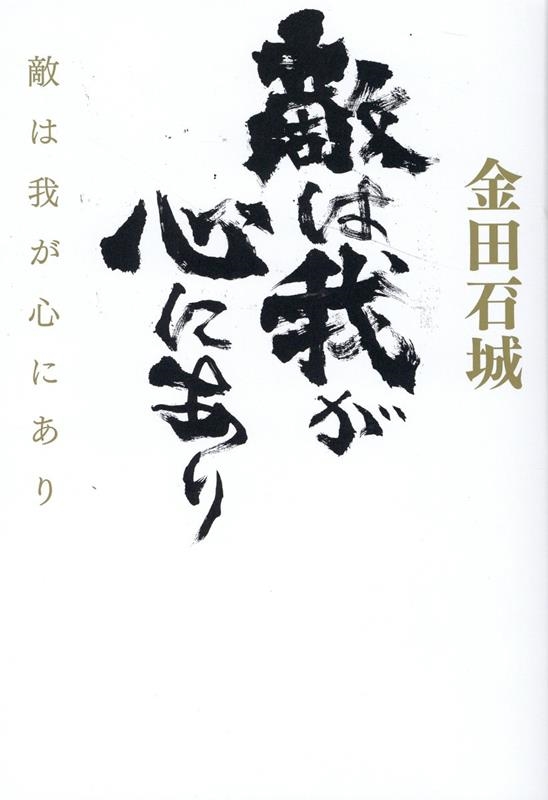 金田石城
敵は我が
心にあり
敵は我が心にあり